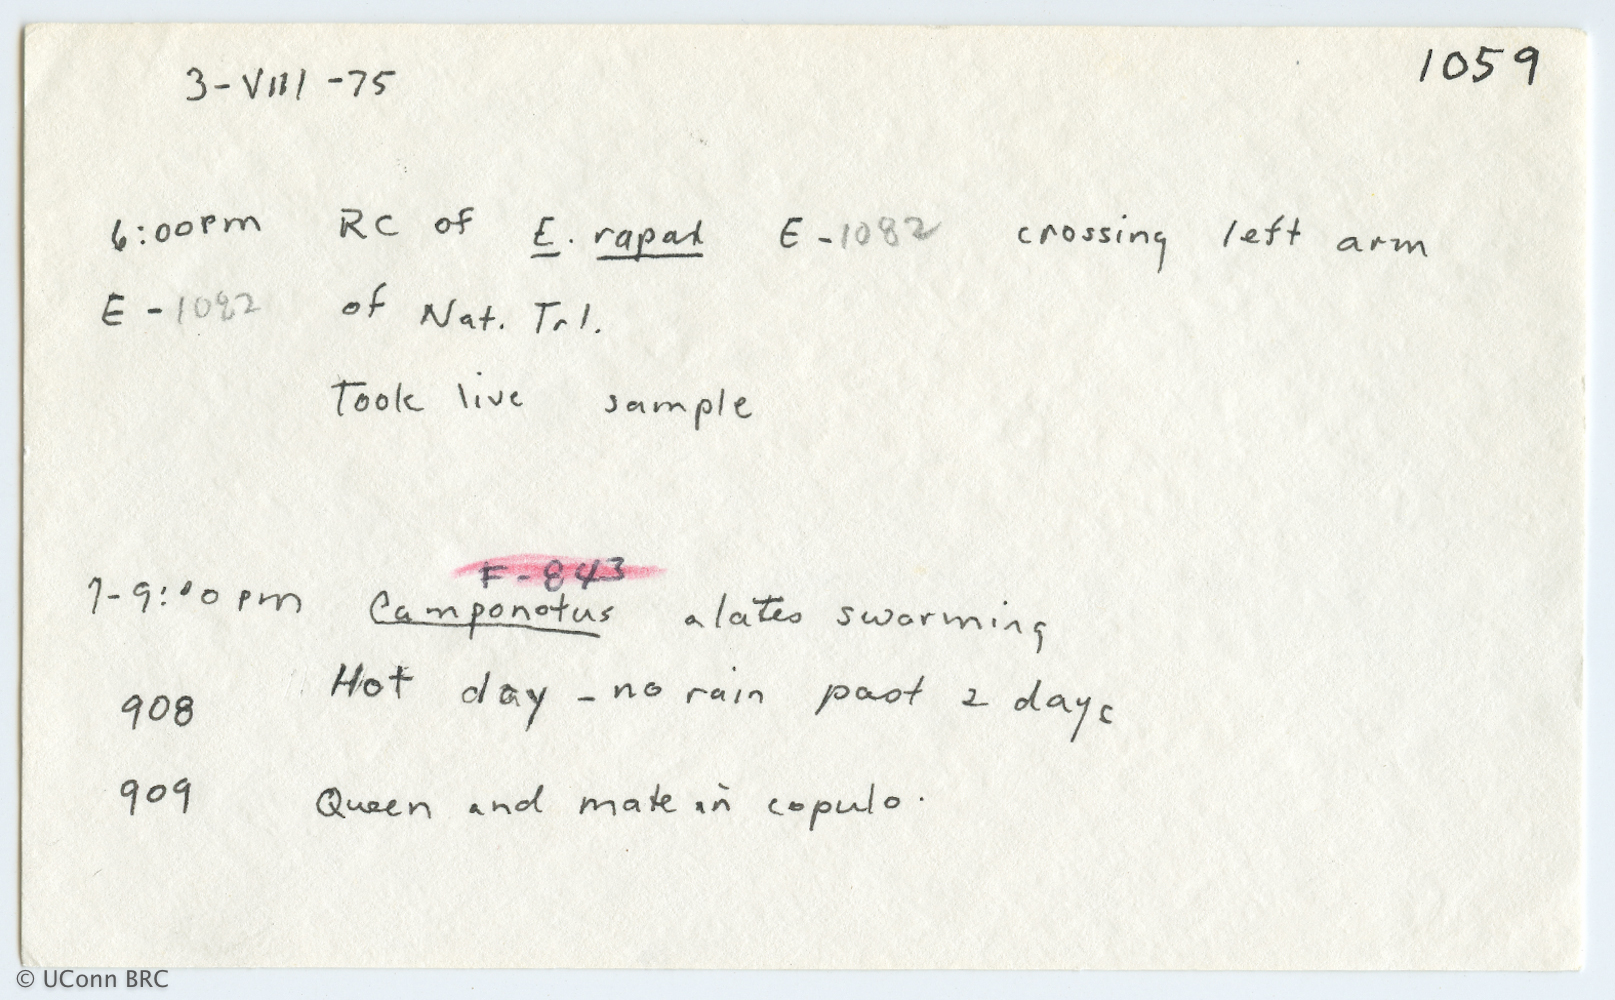 1059
3-VIII-75
6:00pm RC of E. rapax E-1082 crossing left arm
E-1082 of Nat. Trl.
Took live sample
F-843
7-9:00pm Camponotus alates swarming
908 Hot day - no rain past 2 days
909 Queen and mate in copulo.
© UConn BRC